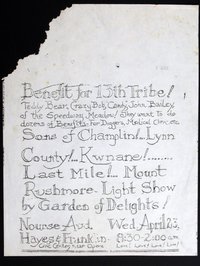 Benefit for 13th Tribe!
Teddy Bear, Crazy Bob, Candy, John, Bailey,
of the Speedway Meadow! They want to do
dozens of Benefits For Diggers, Medical Clinic etc.
Sons of Champlin!.. Lynn
County!.. Kwnane!........
Last Mile!.. Mount
Rushmore. Light Show
by Garden of Delights!
Nourse Aud. Wed April 23,
Hayes & Franklin 8:30-2:00 am
Live! Live! Live! Live!